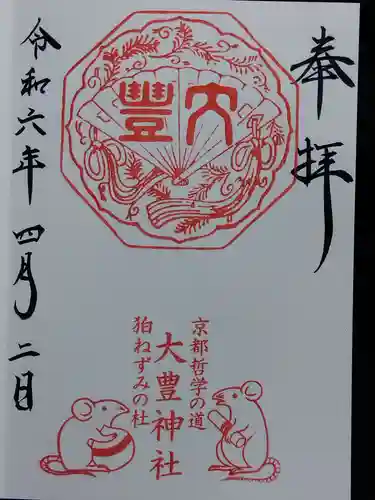 奉拝
大豐
京都哲学の道
大豊神社
狛ねずみの杜
令和六年 四月 二日